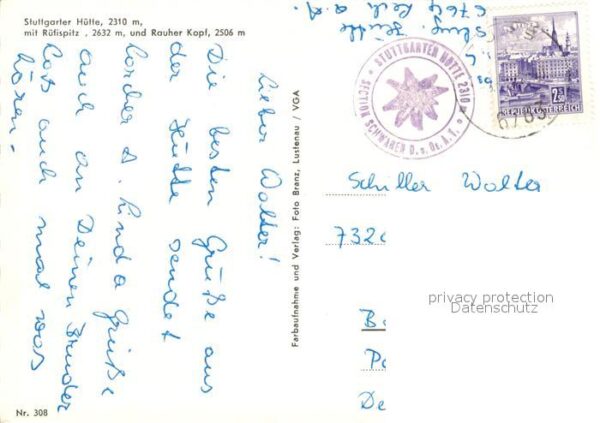 Stuttgarter Hütte, 2310 m,
mit Rüfispitz , 2632 m, und Rauher Kopf, 2506 m
Lieber Walter!
Die besten Grüße aus
der Hütte sendet
Linda Grüße
auch an Deinen Bruder
Laß auch mal was
hören.
Nr. 308
Farbaufnahme und Verlag: Foto Branz, Lustenau / VGA
Hütte
6764 Lech a. A.
STUTTGARTER HÜTTE 2310 m
SECTION SCHWABEN D. u. Oe. A. V.
2.50
REPUBLIK ÖSTERREICH
6763
Schiller Walter
732
privacy protection
Datenschutz
B
Po
De